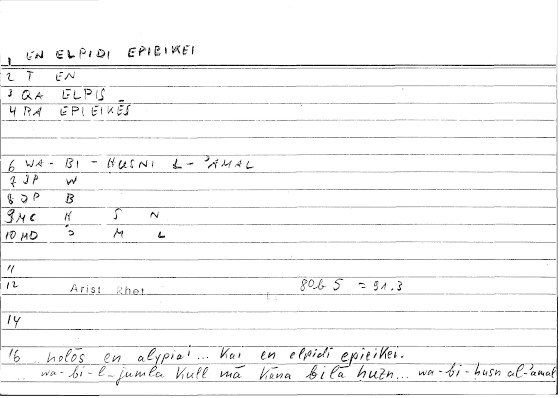 1 EN ELPIDI EPIEIKEI
2 T EN
3 QA ELPIS
4 RA EPIEIKĒS
6 WA - BI - HUSNI L - ʾAMAL
7 JP W
8 JP B
9 MC H S N
10 MD ʾ M L
11
12 Arist Rhet 80b 5 = 91.3
14
16 holōs en alypiai ... kai en elpidi epieikei.
wa-bi-l-jumla kull mā kāna bilā huzn... wa-bi-husn al-ʾamal